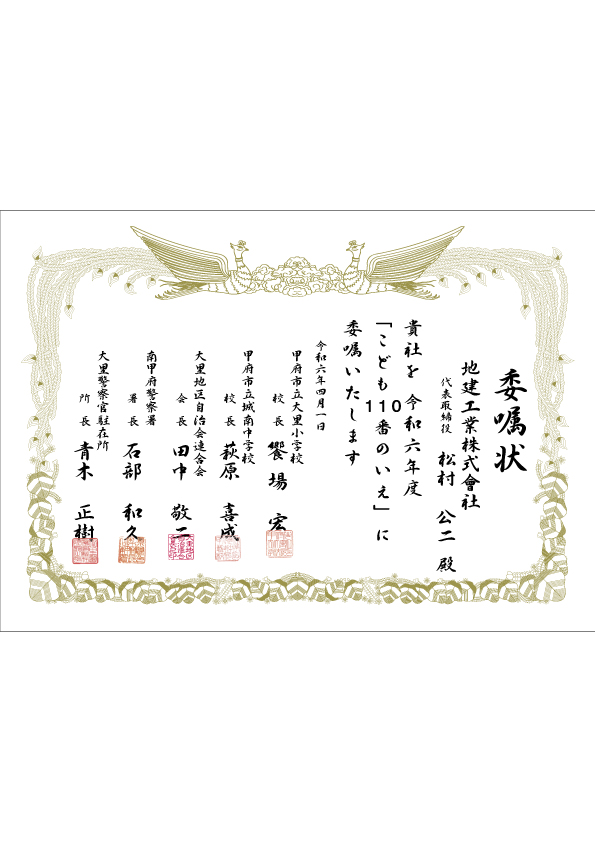 委嘱状
地建工業株式會社
代表取締役 松村 公二 殿
貴社を 令和六年度
「こども110番のいえ」に
委嘱いたします
令和六年四月一日
甲府市立大里小学校
校長 饗場 宏
甲府市立城南中学校
校長 萩原 喜成
大里地区自治会連合会
会長 田中 敬二
南甲府警察署
署長 石部 和久
大里警察官駐在所
所長 青木 正樹